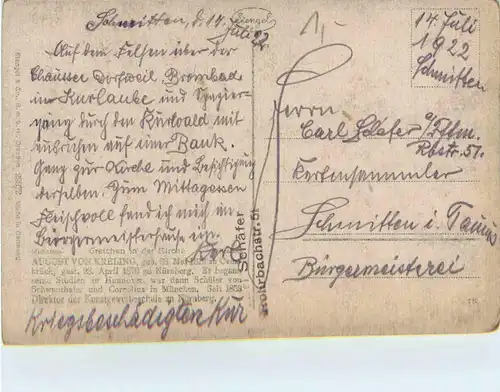 Schmitten, d. 14.
Juli 22.
Auf dem Felsen über der
Chaussee Dorfweil, Brombach
im Kurlaube und Spazier-
gang durch den Kurwald mit
ausruhen auf einer Bank.
Gang zur Kirche und Besichtigung
derselben. Zum Mittagessen
fand ich mich im
Bürgermeisterhause ein.
Carl
Gretchen in der Kirche
AUGUST VON KRELING, geb. 23. Mai 1819 in Osna-
brück, gest. 23. April 1876 zu Nürnberg. Er begann
seine Studien in Hannover, war dann Schüler von
Schwanthaler und Cornelius in München. Seit 1853
Direktor der Kunstgewerbeschule zu Nürnberg.
Kriegsbeschädigten Kur
Stengel
Stengel & Co., G. m. b. H., Dresden
Schäfer
Rohrbachstr. 51
1,-
14. Juli
1922
Schmitten
Herrn
Carl Schäfer a/Ffm.
Rbstr. 51.
Kartensammler
Schmitten i. Taunus
Bürgermeisterei